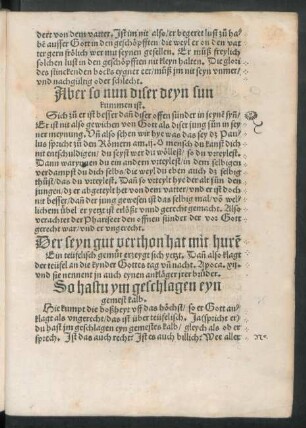 dert von dem vatter. Ist im nit also/ er begeret lust zů ha-
bē ausser Gott in den geschöpfften die weyl er on den vat-
ter gern frölich wer mit seynen gesellen. Er můß freylich
solchen lust in den geschöpfften nit kleyn halten. Die glori
des stinckenden bocks eygnet er/ můß im nit seyn vnmer/
vnd nachgültig oder schlecht.
Aber so nun diser deyn sun
kummen ist.
Sich zů er ist besser dañ diser offen sünder in seynē synn/
Er ist nit also gewichen von Gott als diser jung sun in sey-
ner meynung. Vñ also sehen wir hye was das sey das Pau-
lus spricht zů den Römern am.ij. O mensch du kanst dich
nit entschuldigen/ du seyst wer du wöllest/ so du vrteylest.
Dann warynnen du ein andern vrteylest/ in dem selbigen
verdampst du dich selbs/ die weyl du eben auch du selbig
thůst das du vrteylest. Dañ so er vrteylet der alt sün den
jungen/ dz er abgeteylt het von dem vatter/ vnd er ist doch
nit besser/ dañ der jung gewesen ist das selbig mal/ vō wel-
lichem übel er yetz ist erlößt vnd gerecht gemacht. Also
verachtet der Phariseer den offnen sünder der vor Gott
gerecht war/ vnd er vngerecht.
Der seyn gůt verthon hat mit hurē
Ein teüfelisch gemüt erzeygt sich yetzt. Dañ also klagt
der teüfel an die kynder Gottes tag vñ nacht. Apoca. xij.
vnd sie nennent jn auch eynen ankläger jrer brüder.
So hastu ym geschlagen eyn
gemest kalb.
Hie kumpt die boßheyt vff das höchst/ so er Gott an-
klagt als vngerecht/ das ist über teüfelisch. Ja (spricht er)
du hast jm geschlagen eyn gemestes kalb/ gleych als ob er
sprech. Ist das auch recht: Ist es auch billich: Wee aller